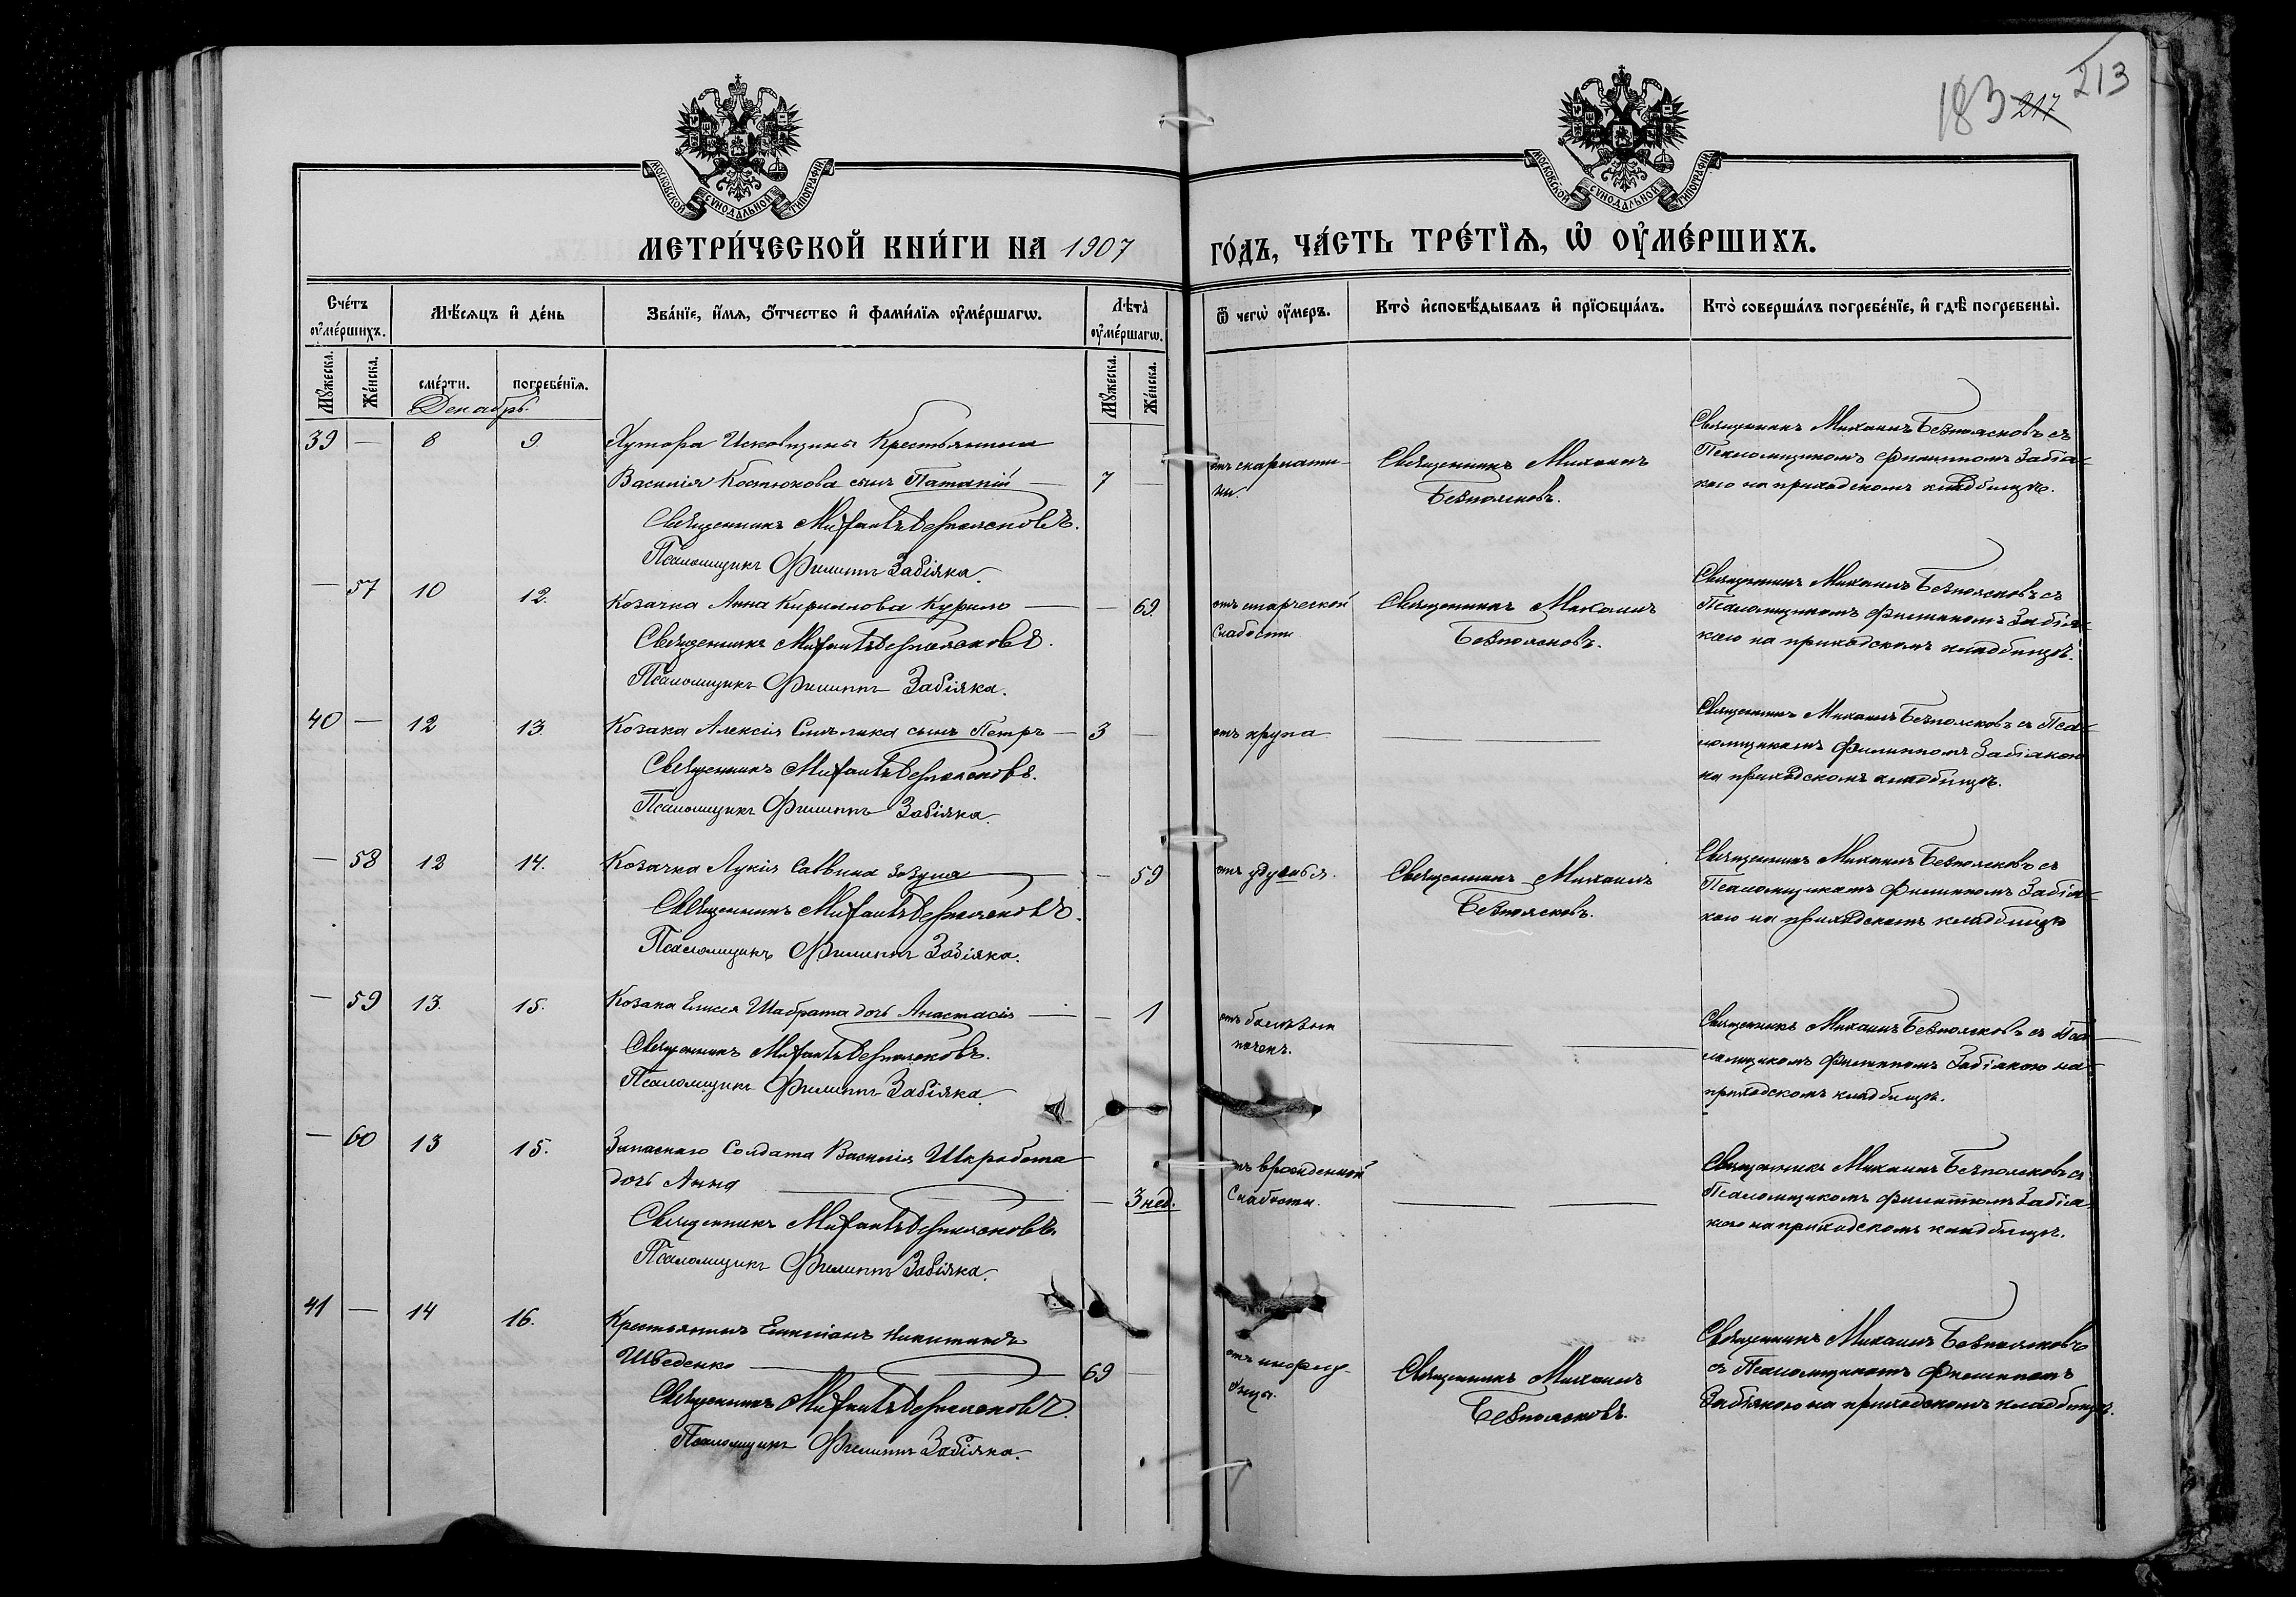 183 217 213
МОСКОВСКОЙ СУНОДАЛЬНОЙ ТИПОГРАФІИ
МОСКОВСКОЙ СУНОДАЛЬНОЙ ТИПОГРАФІИ
МЕТРИ́ЧЕСКОЙ КНИ́ГИ НА 1907
ГО́ДЪ, ЧА́СТЬ ТРЕ́ТЇѦ, Ѡ҆ ОУ҆МЕ́РШИХЪ.
Сче́тъ оу҆ме́ршихъ.
Мѣ́сѧцъ и҆ де́нь
Зва́нїе, и҆́мѧ, о҆́тчество и҆ фамилїѧ оу҆ме́ршагѡ.
Лѣ̀та оу҆ме́ршагѡ.
Ѿ чегѡ̀ оу҆́меръ.
Кто̀ и҆сповѣ́дывалъ и҆ прїѻбща́лъ.
Кто̀ соверша́лъ погребе́нїе, и҆ гдѣ̀ погребены̀.
Мꙋ́жеска. Же́нска.
сме́рти. погребе́нїѧ.
Мꙋ́жеска. Же́нска.
Декабрь.
39 — 8 9 Хутора Исковщины Крестьянина
Василія Костюкова сынъ Патапій — 7 —
Священникъ Михаилъ Безпоясковъ.
Псаломщикъ Филиппъ Забіяка.
отъ скарлати-
ны.
Священникъ Михаилъ
Безпоясковъ.
Священникъ Михаилъ Безпоясковъ съ
Псаломщикомъ Филиппомъ Забія-
кою на приходскомъ кладбищѣ.
— 57 10 12. Козачка Анна Кириллова Курило — — 69.
Священникъ Михаилъ Безпоясковъ.
Псаломщикъ Филиппъ Забіяка.
отъ старческой
слабости
Священникъ Михаилъ
Безпоясковъ.
Священникъ Михаилъ Безпоясковъ съ
Псаломщикомъ Филиппомъ Забія-
кою на приходскомъ кладбищѣ.
40 — 12 13. Козака Алексія сынъ Петръ — 3 —
Священникъ Михаилъ Безпоясковъ.
Псаломщикъ Филиппъ Забіяка.
отъ крупа
Священникъ Михаилъ Безпоясковъ съ Пса-
ломщикомъ Филиппомъ Забіякою
на приходскомъ кладбищѣ.
— 58 12 14. Козачка Лукія Саввина Зозуля — 59
Священникъ Михаилъ Безпоясковъ.
Псаломщикъ Филиппъ Забіяка.
отъ удушья.
Священникъ Михаилъ
Безпоясковъ.
Священникъ Михаилъ Безпоясковъ съ
Псаломщикомъ Филиппомъ Забія-
кою на приходскомъ кладбищѣ
— 59 13. 15. Козака Елисея Шабрата дочь Анастасія — — 1
Священникъ Михаилъ Безпоясковъ.
Псаломщикъ Филиппъ Забіяка.
отъ болѣзни
почекъ.
Священникъ Михаилъ Безпоясковъ съ Пса-
ломщикомъ Филиппомъ Забіякою на
приходскомъ кладбищѣ.
— 60 13 15. Запаснаго Солдата Василія Шкробота
дочь Анна — — 3 нед.
Священникъ Михаилъ Безпоясковъ.
Псаломщикъ Филиппъ Забіяка.
отъ врожденной
слабости.
Священникъ Михаилъ Безпоясковъ съ
Псаломщикомъ Филиппомъ Забія-
кою на приходскомъ кладбищѣ.
41 — 14 16. Крестьянинъ Емиліанъ Никитинъ
Шведенко — 69 —
Священникъ Михаилъ Безпоясковъ.
Псаломщикъ Филиппъ Забіяка.
отъ инфлу-
энцы.
Священникъ Михаилъ
Безпоясковъ.
Священникъ Михаилъ Безпоясковъ
съ Псаломщикомъ Филиппомъ
Забіякою на приходскомъ кладбищѣ.